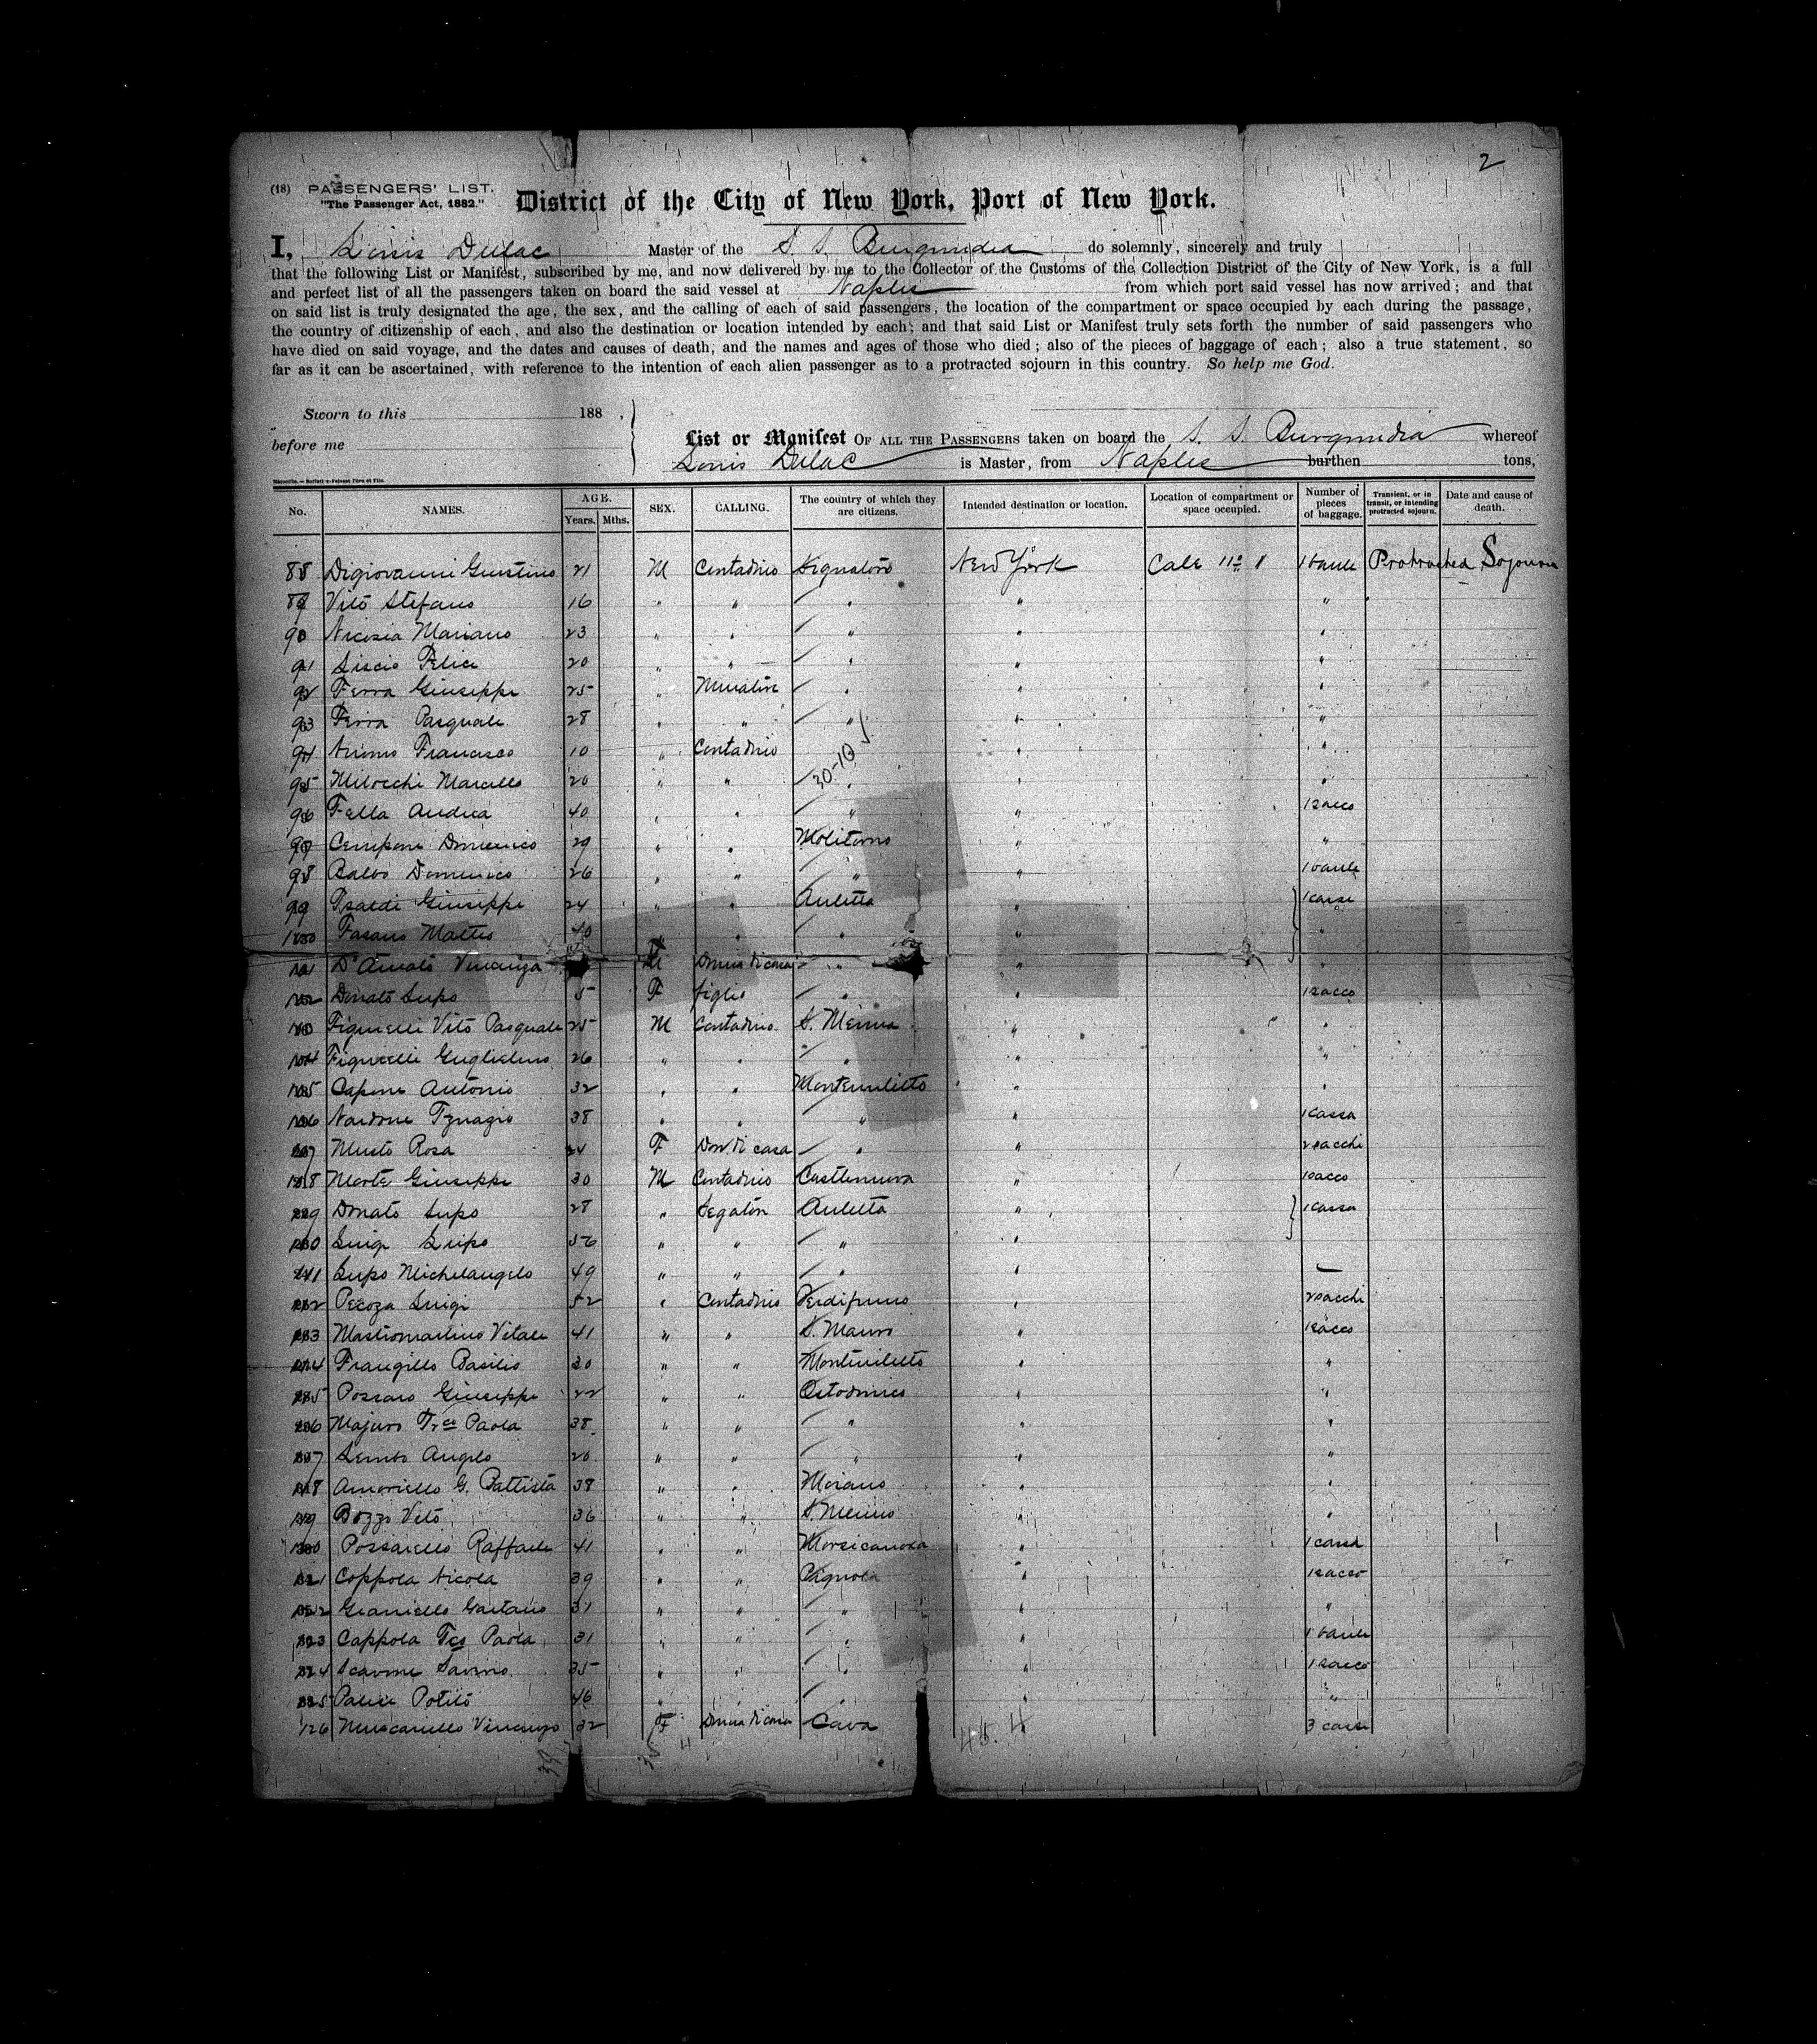 2
(18) PASSENGERS' LIST.
"The Passenger Act, 1882."
District of the City of New York, Port of New York.
I, Louis Dulac Master of the S. S. Burgundia do solemnly, sincerely and truly
that the following List or Manifest, subscribed by me, and now delivered by me to the Collector of the Customs of the Collection District of the City of New York, is a full
and perfect list of all the passengers taken on board the said vessel at Naples from which port said vessel has now arrived; and that
on said list is truly designated the age, the sex, and the calling of each of said passengers, the location of the compartment or space occupied by each during the passage,
the country of citizenship of each, and also the destination or location intended by each; and that said List or Manifest truly sets forth the number of said passengers who
have died on said voyage, and the dates and causes of death, and the names and ages of those who died; also of the pieces of baggage of each; also a true statement, so
far as it can be ascertained, with reference to the intention of each alien passenger as to a protracted sojourn in this country. So help me God.
Sworn to this 188 ,
before me
List or Manifest OF ALL THE PASSENGERS taken on board the S. S. Burgundia whereof
Louis Dulac is Master, from Naples burthen tons,
No. NAMES. AGE. Years. Mths. SEX. CALLING. The country of which they are citizens. Intended destination or location. Location of compartment or space occupied. Number of pieces of baggage. Transient, or in transit, or intending protracted sojourn. Date and cause of death.
88 Digiovanni Giustino 21 M Contadino New York Cale 1 baule Protracted Sojourn
89 Vito Stefano 16 " " " " "
90 Nicosia Mariano 23 " " " " "
91 Liscio Felice 20 " " " " "
92 Ferra Giuseppe 25 " " " "
93 Ferra Pasquale 28 " " " " "
94 Francesco 10 " Contadino " "
30-10
95 Milocchi Marcello 20 " " " " "
96 Fella Andrea 40 " " " " 1 sacco
97 Domenico 29 " " Moliterno " "
98 Balbo Domenico 26 " " " 1 baule
99 Giuseppe 24 " " Auletta " 1 casse
100 Fasano Matteo 40 " " " " "
101 D'Amato Vincenza Donna di casa " " "
102 Donato Lupo 5 F figlio " " 1 sacco
103 Vito Pasquale 25 M Contadino S. Menna " "
104 Guglielmo 26 " " " " "
105 Capone Antonio 32 " " Montemiletto " "
106 Nardone Ignazio 38 " " " " 1 cassa
107 Musto Rosa 24 F Don di casa " " 2 sacchi
108 Giuseppe 30 M Contadino Castelnuova " 1 sacco
109 Donato Lupo 28 " Auletta " 1 cassa
110 Luigi Lupo 56 " " " "
111 Lupo Michelangelo 49 " " " " —
112 Luigi 52 " Contadino " 2 sacchi
113 Mastromarino Vitale 41 " " S. Mauro " 1 sacco
114 Frangillo Basilio 30 " " Montemiletto " "
115 Giuseppe 22 " " " "
116 Majuro Frco Paola 38 " " " " "
117 Lembo Angelo 20 " " " " "
118 Amoriello G. Battista 38 " " Morano " "
119 Bozzo Vito 36 " " S. Menno " "
120 Possariello Raffaele 41 " " " 1 cassa
121 Coppola Nicola 39 " " " 1 sacco
122 Gaetano 31 " " " " "
123 Coppola Fco Paola 31 " " " " 1 baule
124 Scavone Savino 35 " " " " 1 sacco
125 Potito 46 " " " " "
126 Muscariello Vincenza 32 F Donna di casa Cava 3 casse